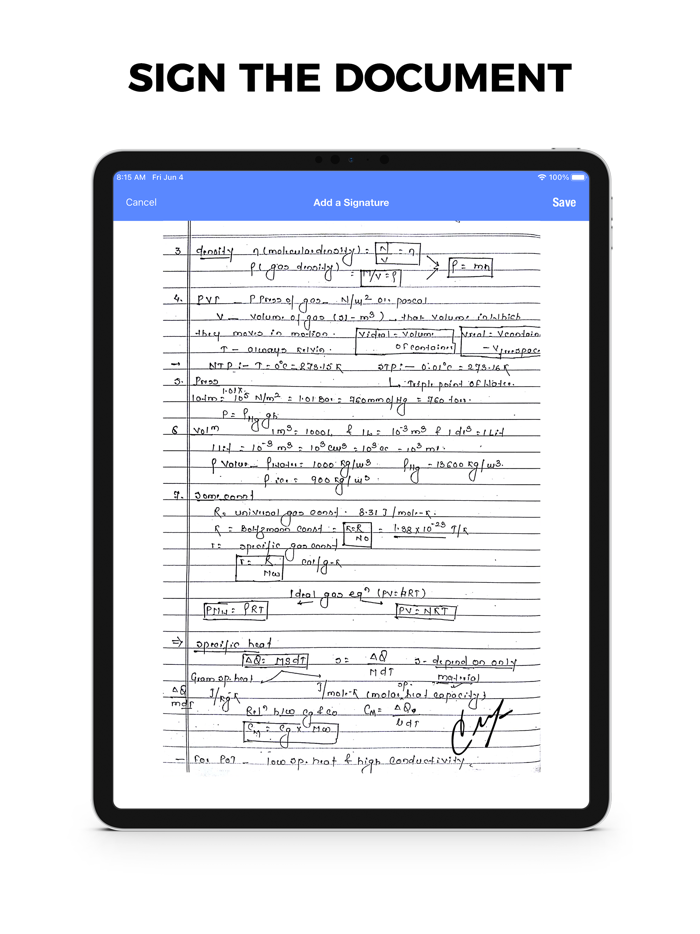 SIGN THE DOCUMENT
8:15 AM Fri Jun 4 100%
Cancel Add a Signature Save
3. density η (molecular density) = N/V = η
ρ ( gas density) = M/V = ρ ρ = mn
4. PVT _ P Press of gas _ N/m² or pascal
V _ Volume of gas (SI - m³) , that volume in which
they moves in motion. Videal = Volume of container Vreal = Vcontain - Vfreespace
T - always kelvin.
→ NTP :- T = 0°C = 273.15 K STP :- 0.01°C = 273.16 K
5. Press ↳ Triple point of Water.
1 atm = 1.01× 10⁵ N/m² = 1.01 Bar = 760mm of Hg = 760 torr.
P = ρHg gh
6 Volm 1m³ = 1000L & 1L = 10⁻³ m³ & 1 dl³ = 1 Lit
1 Lit = 10⁻³ m³ = 10³ cm³ = 10³ cc - 10³ ml.
ρ Value _ ρwater = 1000 kg/m³ ρHg - 13600 kg/m³.
ρice = 900 kg/m³
7. Some const
R = universal gas const. 8.31 J/mole-K.
K = Boltzmann const = K=R/N0 = 1.38 × 10⁻²³ J/K
r = specific gas const
r = R/Mw cal/g-K
Ideal gas eqⁿ (PV=nRT)
PMw = ρRT PV = NKT
⇒ specific heat
ΔQ = MSdT s = ΔQ/MdT s - depend on only material
Gram sp. heat
ΔQ/mdT J/kg-K J/mole-K (molar sp. heat capacity)
Relⁿ b/w cg & co CM = ΔQ/ndT
CM = Cg × Mw
- For Pot - low sp. heat & high conductivity.